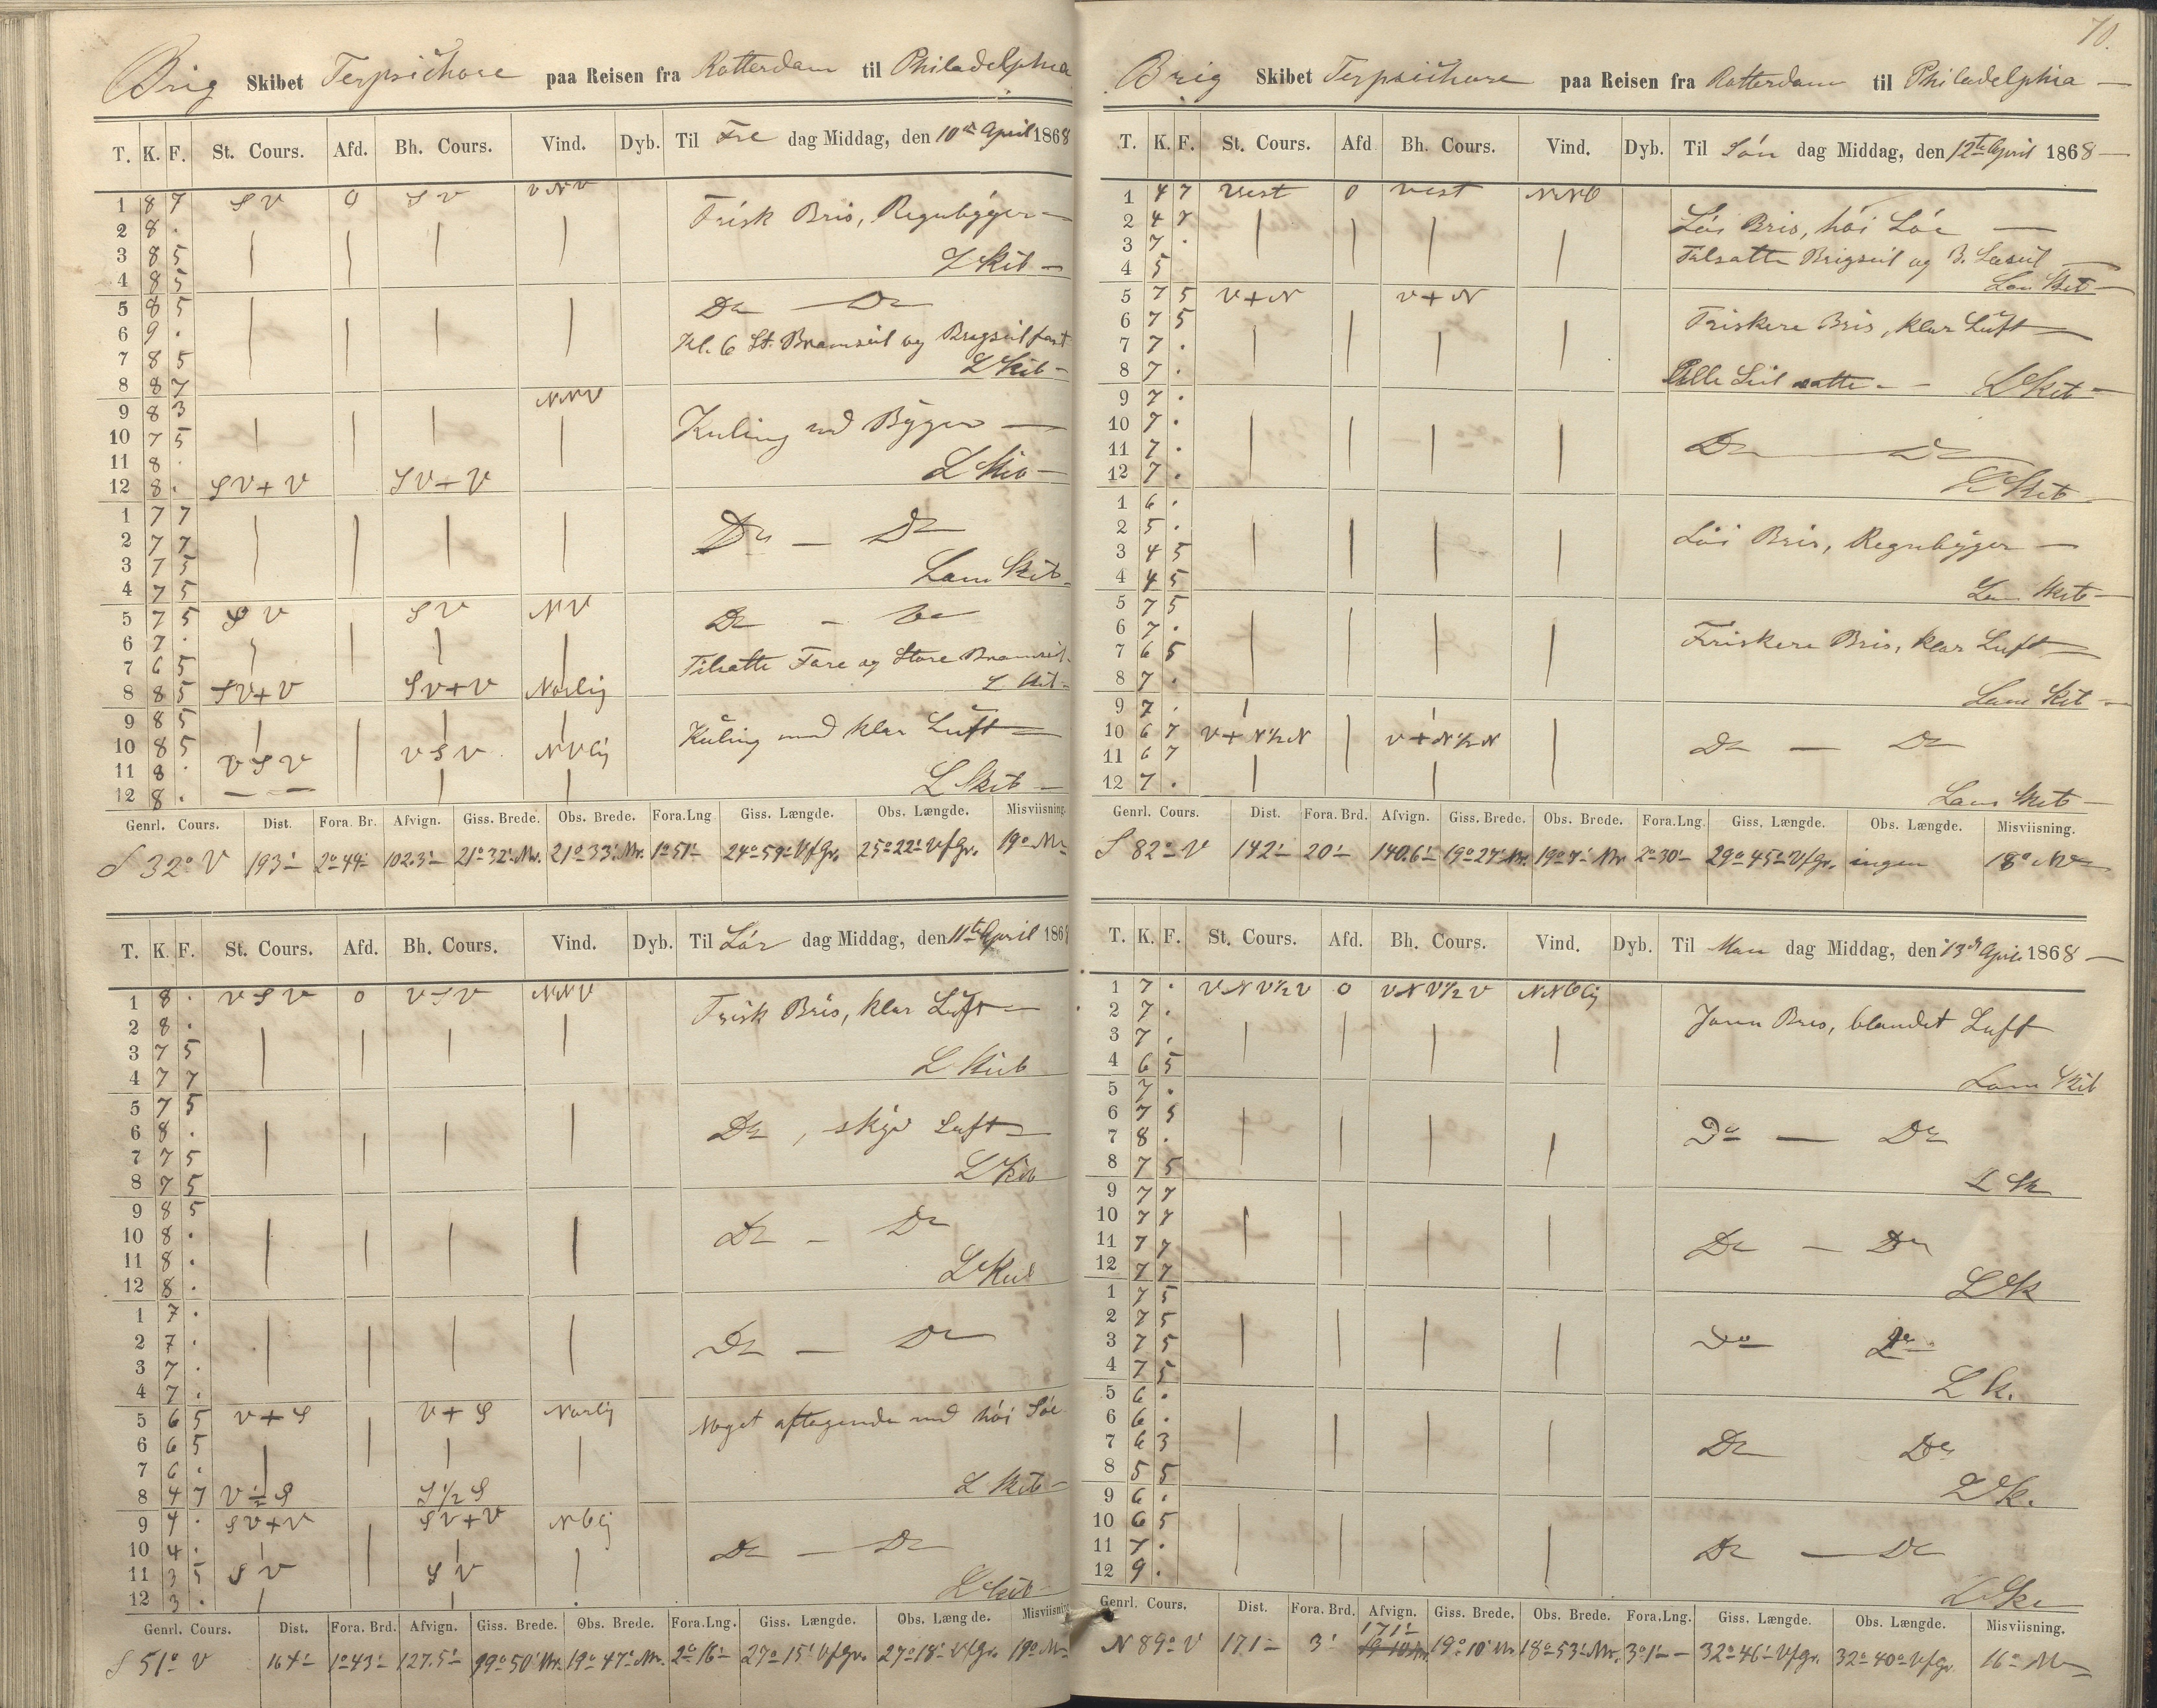 Brig Skibet Terpsichore paa Reisen fra Rotterdam til Philadelphia
T. K. F. St. Cours. Afd. Bh. Cours. Vind. Dyb. Til Fre dag Middag, den 10de April 1868
1 8 7 SV 0 SV VNV Frisk Bris, Regnbyger
2 8 .
3 8 5 L Skib
4 8 5
5 8 5 Do Do
6 9 . Kl. 6 St. Bramseil og Brigseil fast
7 8 5 L Skib
8 8 7
9 8 3 NNV Kuling med Byger
10 7 5
11 8 . L Skib
12 8 . SV+V SV+V
1 7 7
2 7 7 Do Do
3 7 5 Lam Skib
4 7 5
5 7 5 SV SV NV Do Do
6 7 .
7 6 5 Tilsatte Fore og Store Bramseil
8 8 5 SV+V SV+V Norlig L Skib
9 8 5 Kuling med klar Luft
10 8 5 VSV NVlig
11 8 . VSV L Skib
12 8 .
Genrl. Cours. Dist. Fora. Br. Afvign. Giss. Brede. Obs. Brede. Fora.Lng Giss. Længde. Obs. Længde. Misviisning.
S 32° V 193' 2°44' 102.3' 21°32' Nr. 21°33' Nr. 1°51' 24°59' VfGr. 25°22' VfGr. 19° NV
T. K. F. St. Cours. Afd. Bh. Cours. Vind. Dyb. Til Lör dag Middag, den 11te April 1868
1 8 . VSV 0 VSV NNV Frisk Bris, klar Luft
2 8 .
3 7 5 L Skib
4 7 7
5 7 5
6 8 . Do, skyd Luft
7 7 5 L Skib
8 7 5
9 8 5
10 8 . Do Do
11 8 . L Skib
12 8 .
1 7 .
2 7 . Do Do
3 7 .
4 7 .
5 6 5 V+S V+S Norlig Noget aftagende med höi Söe
6 6 5
7 6 . L Skib
8 4 7 V½S S½S
9 4 . SV+V SV+V NOlig
10 4 . Do Do
11 3 5 SV SV
12 3 . L Skib
Genrl. Cours. Dist. Fora. Brd. Afvign. Giss. Brede. Obs. Brede. Fora.Lng. Giss. Længde. Obs. Længde. Misviisning
S 51° V 164' 1°43' 127.5' 19°50' Nr. 19°47' Nr. 2°16' 27°15' VfGr. 27°18' VfGr. 19° NV
70.
Brig Skibet Terpsichore paa Reisen fra Rotterdam til Philadelphia
T. K. F. St. Cours. Afd Bh. Cours. Vind. Dyb. Til Sön dag Middag, den 12te April 1868
1 4 7 Vest 0 Vest NNO
2 4 7 Löi Bris, höi Söe
3 7 . Tilsatte Brigseil og B. Læseil
4 5 Lam Skib
5 7 5 V+N V+N
6 7 5 Friskere Bris, klar Luft
7 7 .
8 7 . Alle Seil satte L Skib
9 7 .
10 7 .
11 7 . Do Do
12 7 . L Skib
1 6 .
2 5 . Löi Bris, Regnbyger
3 4 5
4 4 5 Lam Skib
5 7 5
6 7 . Friskere Bris, klar Luft
7 6 5
8 7 . Lam Skib
9 7 .
10 6 7 V+N½N V+N½N Do Do
11 6 7
12 7 . Lam Skib
Genrl. Cours. Dist. Fora. Brd. Afvign. Giss. Brede. Obs. Brede. Fora.Lng. Giss. Længde. Obs. Længde. Misviisning.
S 82° V 142' 20' 140.6' 19°27' Nr. 19°7' Nr 2°30' 29°45' VfGr. ingen 18° NV
T. K. F. St. Cours. Afd. Bh. Cours. Vind. Dyb. Til Man dag Middag, den 13de April 1868
1 7 . VNV½V 0 VNV½V NNOlig
2 7 . Jevn Bris, blandet Luft
3 7 .
4 6 5 Lam Skib
5 7 .
6 7 5 Do Do
7 8 .
8 7 5 L Sk
9 7 7
10 7 7
11 7 7 Do Do
12 7 7 L Sk
1 7 5
2 7 5
3 7 5 Do Do
4 7 5 L k.
5 6 .
6 6 .
7 6 3 Do Do
8 5 5 L Sk.
9 6 .
10 6 5
11 7 . Do Do
12 9 . L Sk
Genrl. Cours. Dist. Fora. Brd. Afvign. Giss. Brede. Obs. Brede. Fora.Lng. Giss. Længde. Obs. Længde. Misviisning.
N 89° V 171' 3' 171' 19°10' Nr 18°53' Nr. 3°1' 32°46' VfGr. 32°40' VfGr. 16° NV